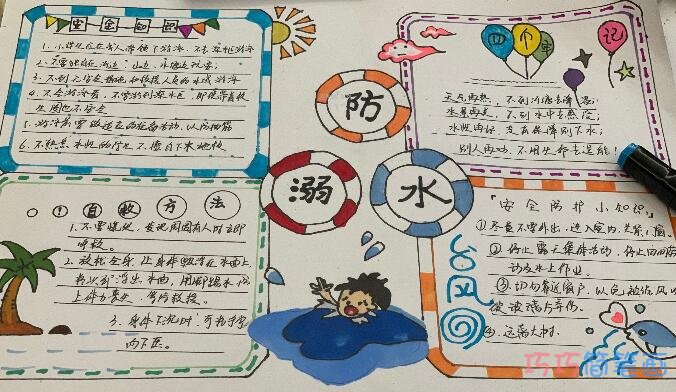 安全知识
1、小学生应在成人带领下游泳，不去深水游泳
2、不要独自在河边、山边、水塘边玩耍；
3、不到无安全措施和救援人员的水域游泳
4、不会游泳者，不要游到深水区，即使带着救
生圈也不安全
5、游泳前要做适当的准备活动，以防抽筋
6、不熟悉水性的学生不擅自下水施救
四个牢记
天气再热，不到河塘去
水量再
水性再好，没有保障别下水；
别人再劝，不用生命去逞能！
防
溺
水
自救方法
1、不要慌张，发现周围有人时立即
呼救。
2、放松全身，让身体飘浮在水面上
将头部浮出水面，用脚踢水防
止体力丧失，等待救援。
3、身体下沉时，可将手掌
向下压。
台风
「安全防护小知识」
①尽量不要外出，进入室内，关紧门窗
②停止露天集体活动，停止
动及水上作业。
③切勿靠近窗户，以免被强风吹
破玻璃片弄伤。
④远离大树。
巧巧简笔画